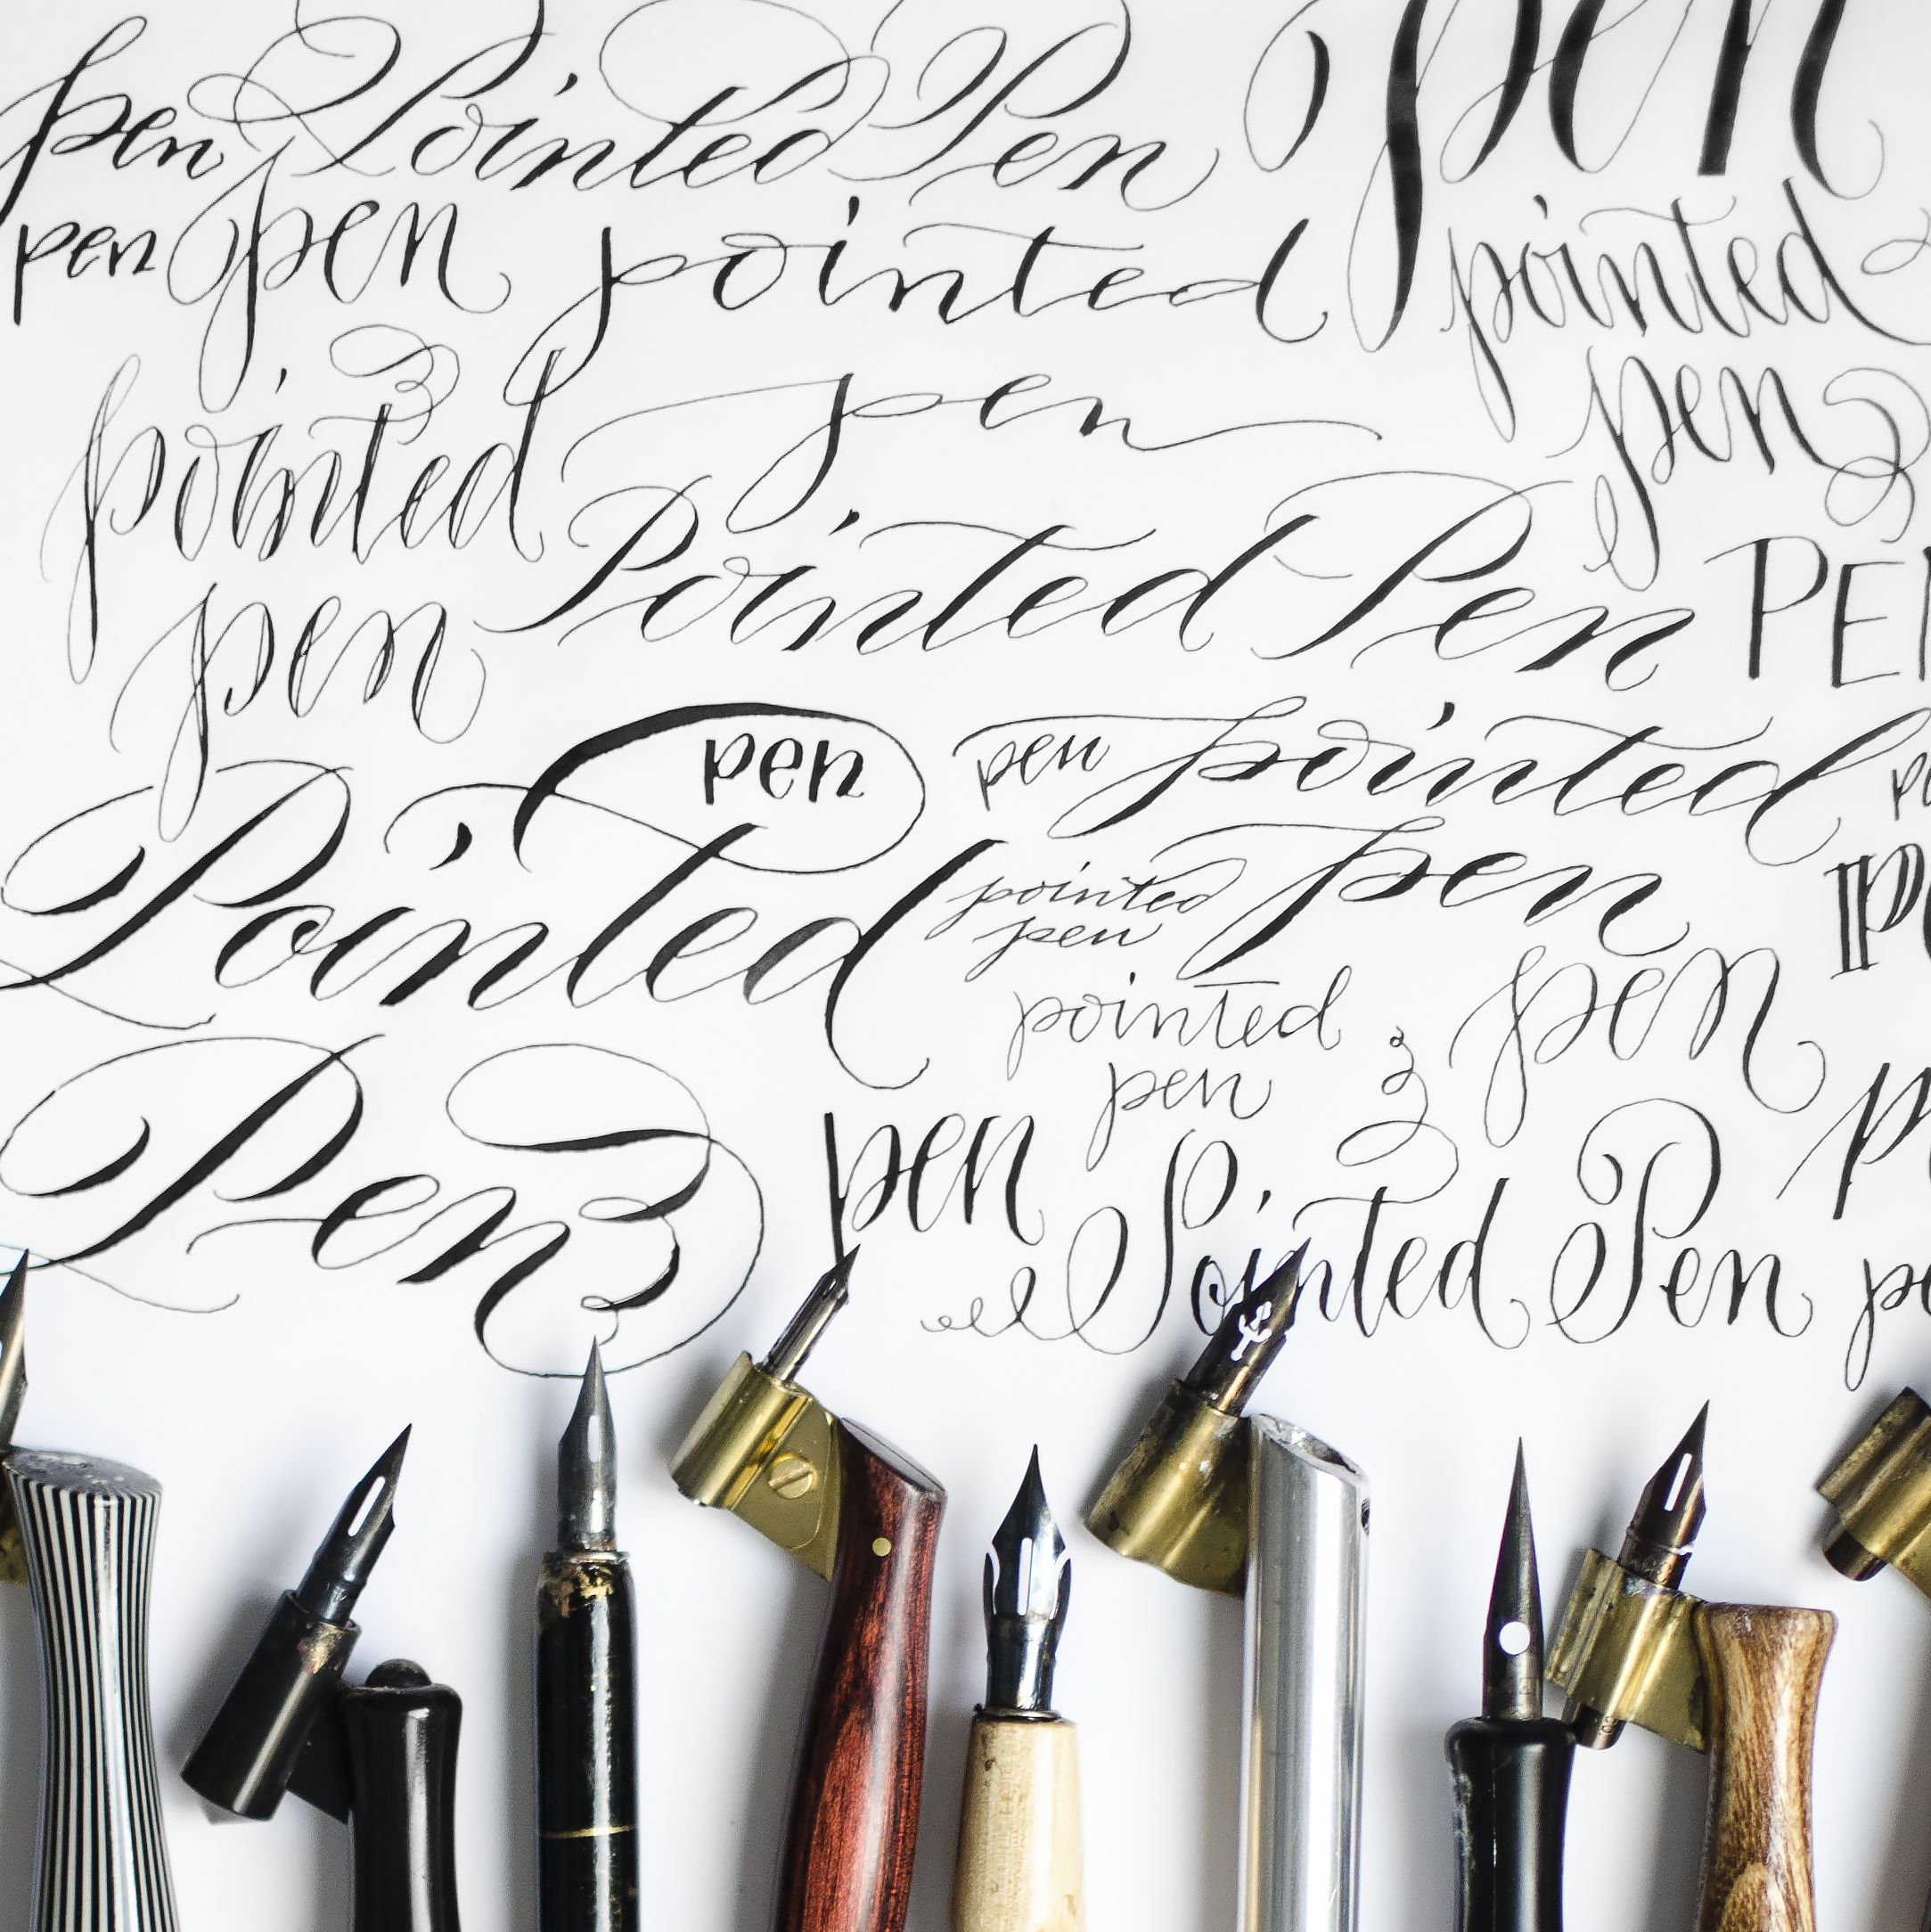 pen Pointed Pen pen
pen pen pointed pointed
pointed pen pen
pen Pointed Pen
pen pen pointed
Pointed pointed pen pen
pointed pen
Pen pen pen
Pointed Pen